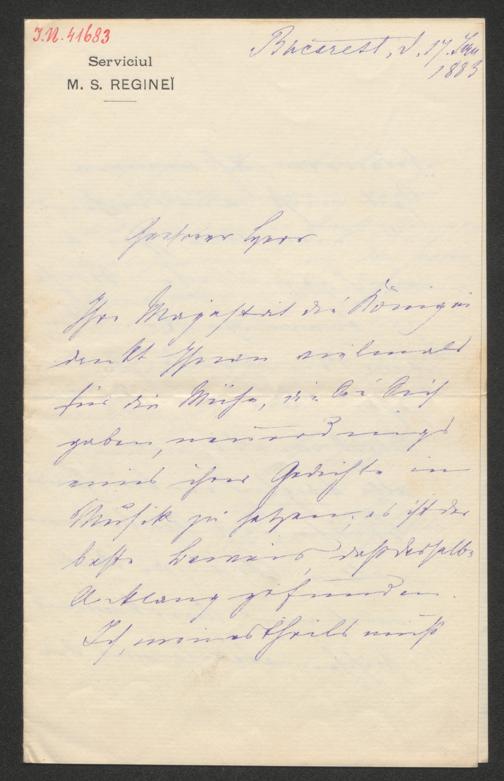 I.N. 41683
Serviciul
M. S. REGINEĬ
Bucarest, d. 17. Jan
1883
Geehrter Herr
Ihre Majestät die Königin
dankt Ihnen vielmals
für die Mühe, die Sie Sich
gaben, neuerdings
eines ihrer Gedichte in
Musik zu setzen; es ist der
beste Beweis, daß dasselbe
Anklang gefunden.
Ich, meinestheils muß